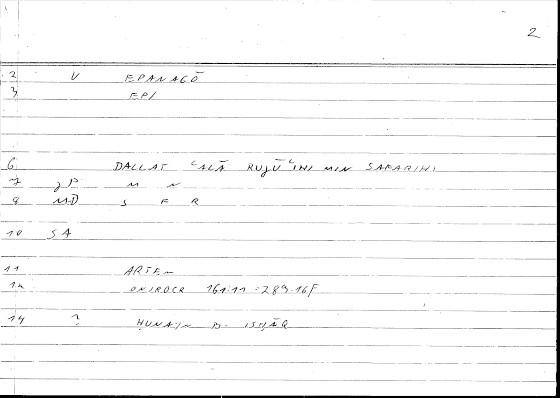 2
2 V EPANAGŌ
3 EPI
6 DALLAT ʿALĀ RUJŪʿIHI MIN SAFARIHI
7 jP M N
8 MD S F R
10 SA
11 ARTEM
12 ONIROCR 161.11 = 289.16F
14 ? ḤUNAYN B. ISḤĀQ